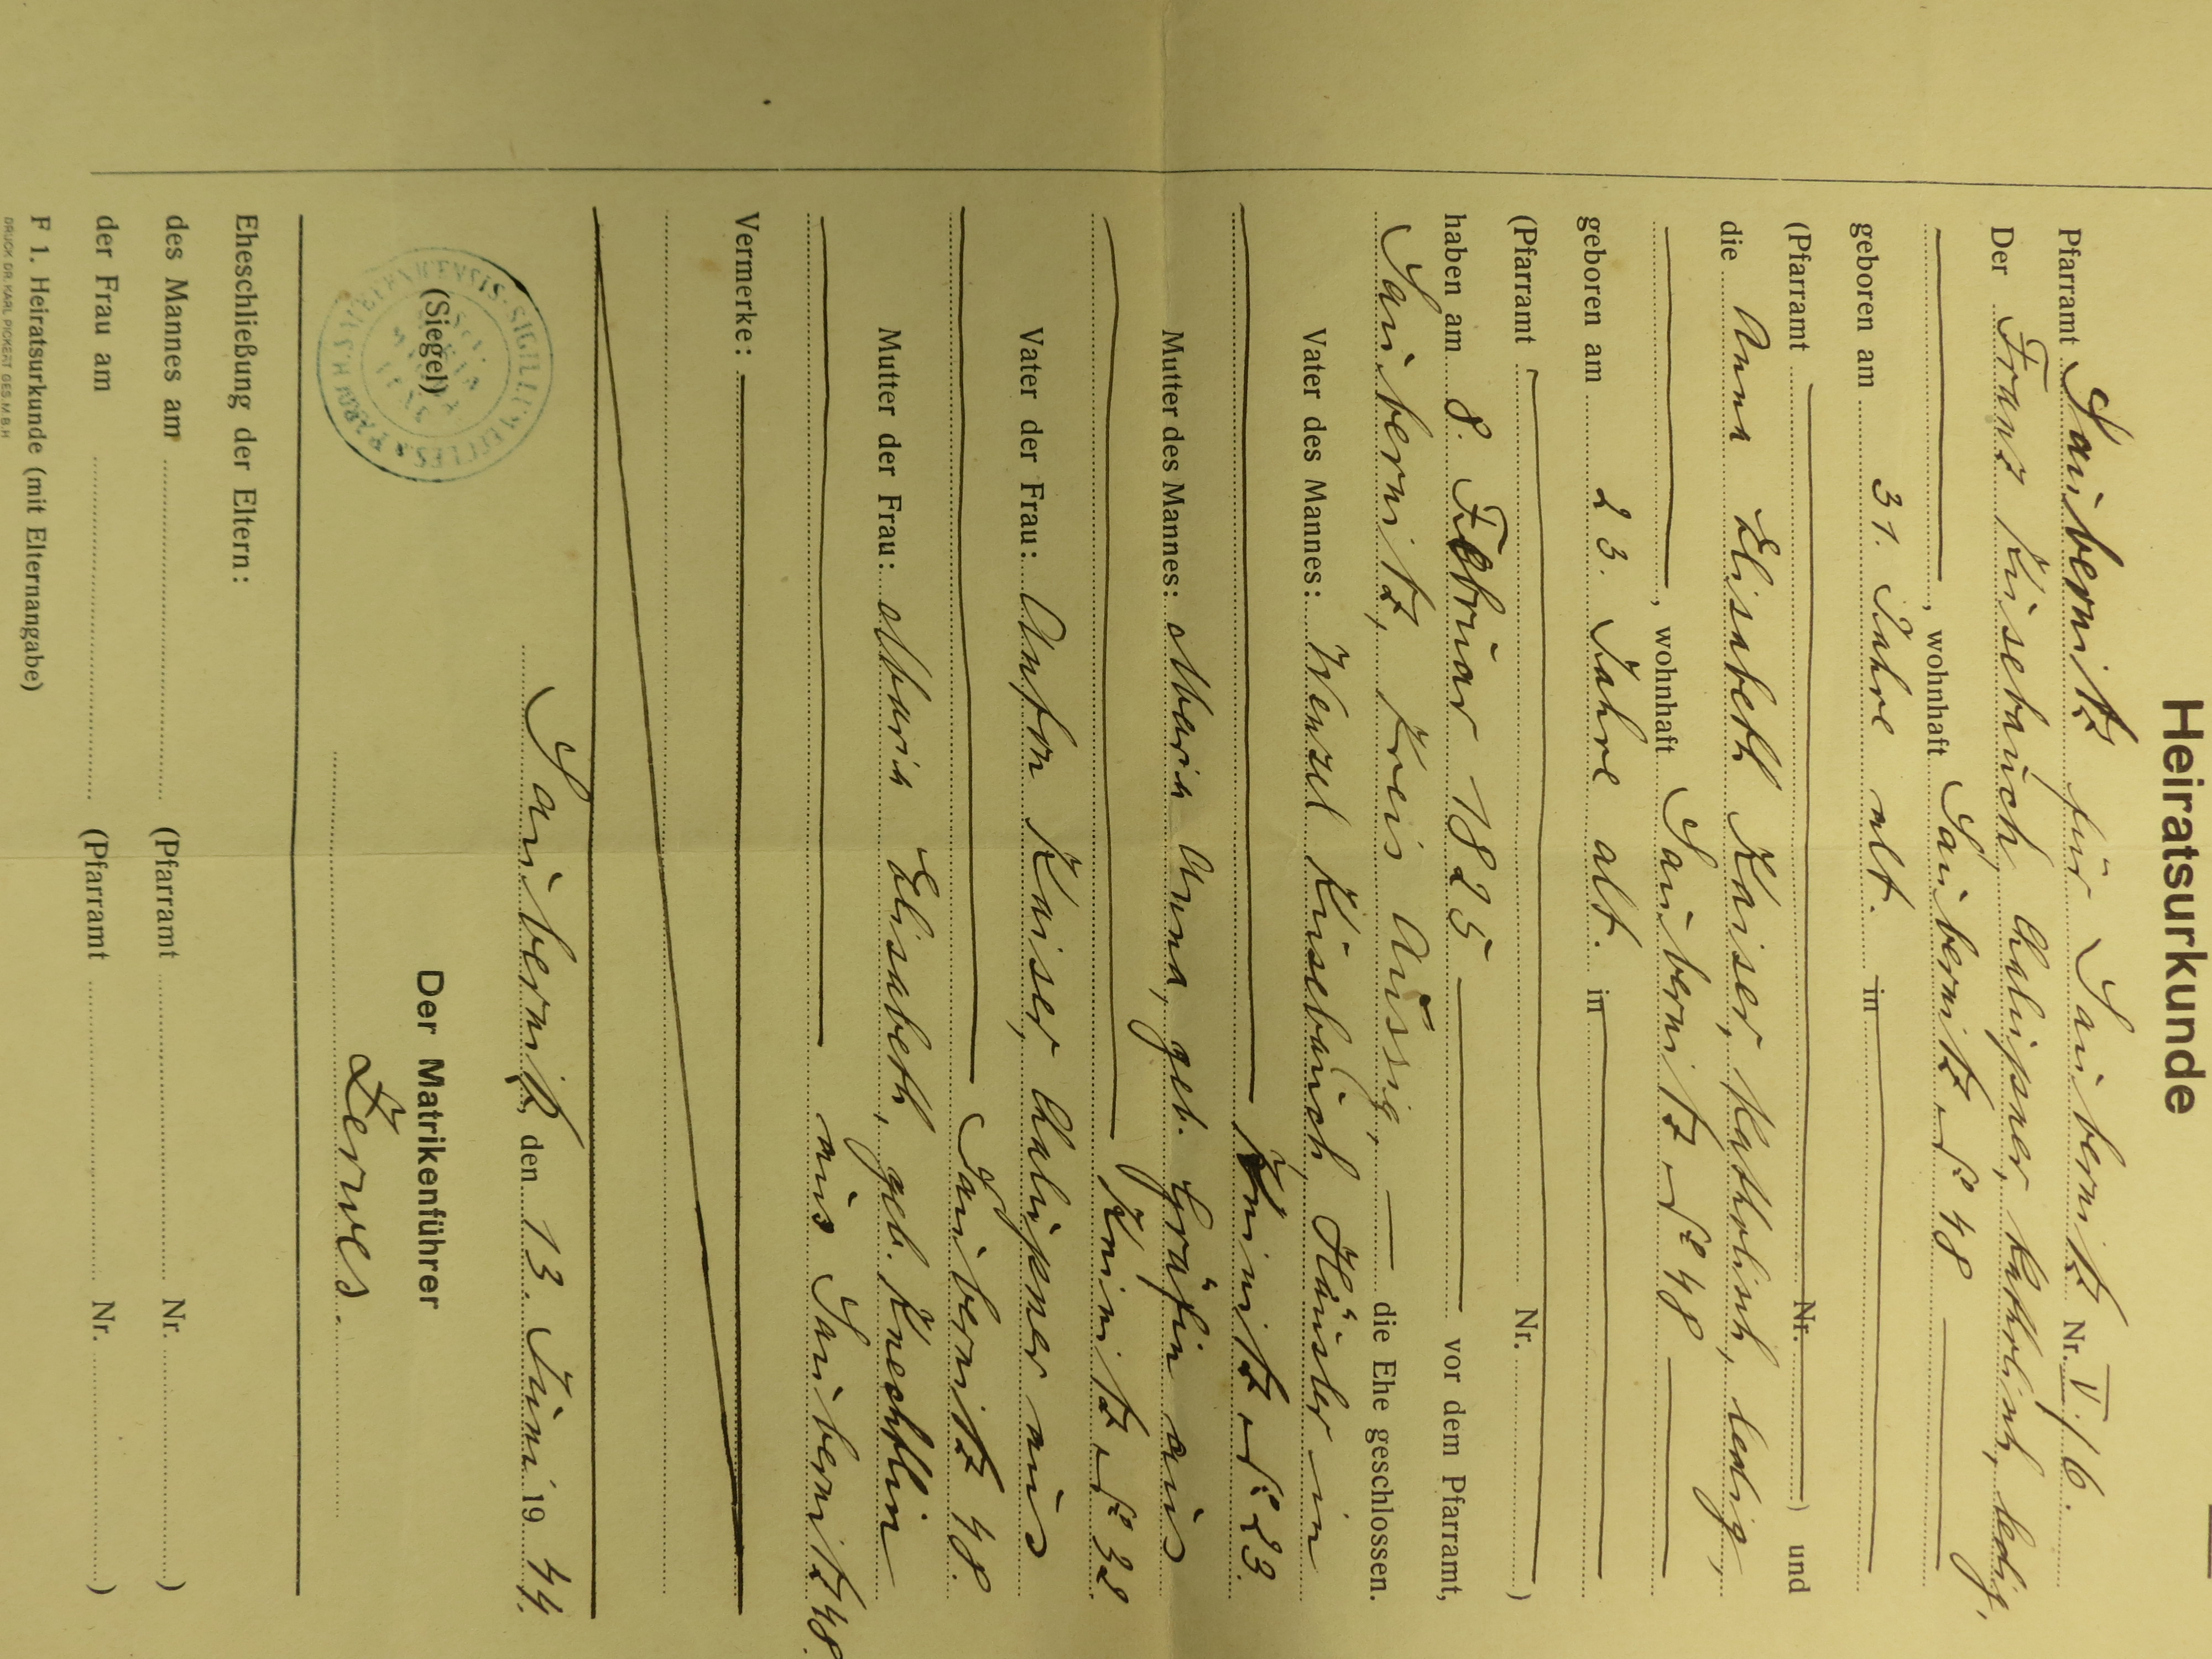 Heiratsurkunde
Pfarramt Saubernitz für Saubernitz Nr. V./6.
Der Franz Kusebauch, Chalupner, katholisch, ledig,
, wohnhaft Saubernitz No 48
geboren am 31. Jahre alt. in
(Pfarramt Nr. ) und
die Anna Elisabeth Kaiser, katholisch, ledig,
, wohnhaft Saubernitz No 48
geboren am 23. Jahre alt. in
(Pfarramt Nr. )
haben am 8. Februar 1825 vor dem Pfarramt,
Saubernitz, Kreis Aussig, die Ehe geschlossen.
Vater des Mannes: Wenzel Kusebauch, Häusler in
Kninitz No 23.
Mutter des Mannes: Maria Anna, geb. Gräfin aus
Kninitz No 32.
Vater der Frau: Anton Kaiser, Chalupner aus
Saubernitz 48.
Mutter der Frau: Maria Elisabeth, geb. Knechtlin
aus Saubernitz 48.
Vermerke:
Saubernitz, den 13. Juni 19 44.
SIGILLUM
(Siegel)
Der Matrikenführer
Zerwes.
Eheschließung der Eltern:
des Mannes am (Pfarramt Nr. )
der Frau am (Pfarramt Nr. )
F 1. Heiratsurkunde (mit Elternangabe)
DRUCK DR. KARL PICKERT GES.M.B.H